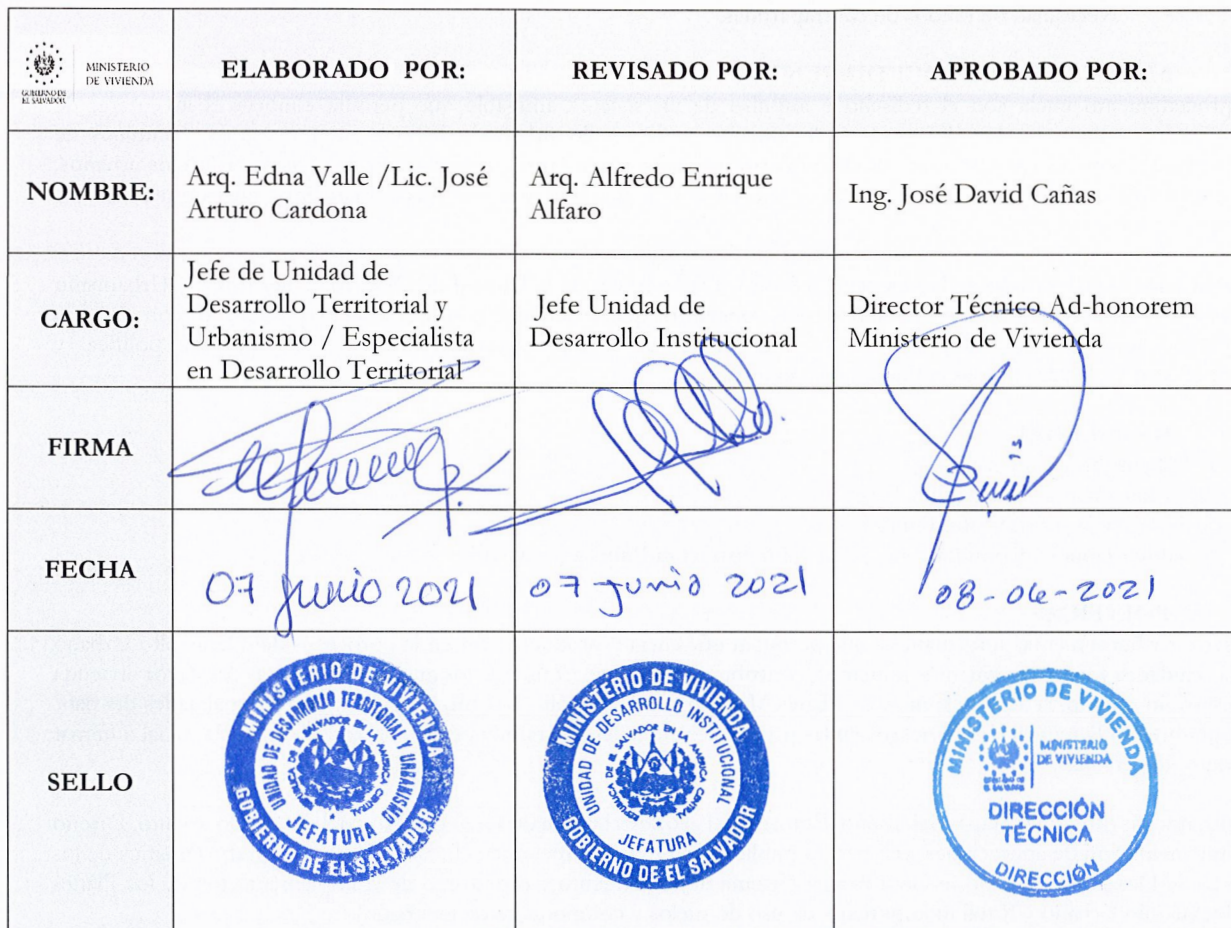 GOBIERNO DE
EL SALVADOR
MINISTERIO
DE VIVIENDA
ELABORADO POR:
REVISADO POR:
APROBADO POR:
NOMBRE:
Arq. Edna Valle /Lic. José
Arturo Cardona
Arq. Alfredo Enrique
Alfaro
Ing. José David Cañas
CARGO:
Jefe de Unidad de
Desarrollo Territorial y
Urbanismo / Especialista
en Desarrollo Territorial
Jefe Unidad de
Desarrollo Institucional
Director Técnico Ad-honorem
Ministerio de Vivienda
FIRMA
FECHA
07 junio 2021
07 junio 2021
08-06-2021
SELLO
MINISTERIO DE VIVIENDA
UNIDAD DE DESARROLLO TERRITORIAL Y URBANISMO
REPÚBLICA DE EL SALVADOR EN LA AMÉRICA CENTRAL
JEFATURA
GOBIERNO DE EL SALVADOR
MINISTERIO DE VIVIENDA
UNIDAD DE DESARROLLO INSTITUCIONAL
REPÚBLICA DE EL SALVADOR EN LA AMÉRICA CENTRAL
JEFATURA
GOBIERNO DE EL SALVADOR
MINISTERIO DE VIVIENDA
MINISTERIO
DE VIVIENDA
DIRECCIÓN
TÉCNICA
DIRECCIÓN